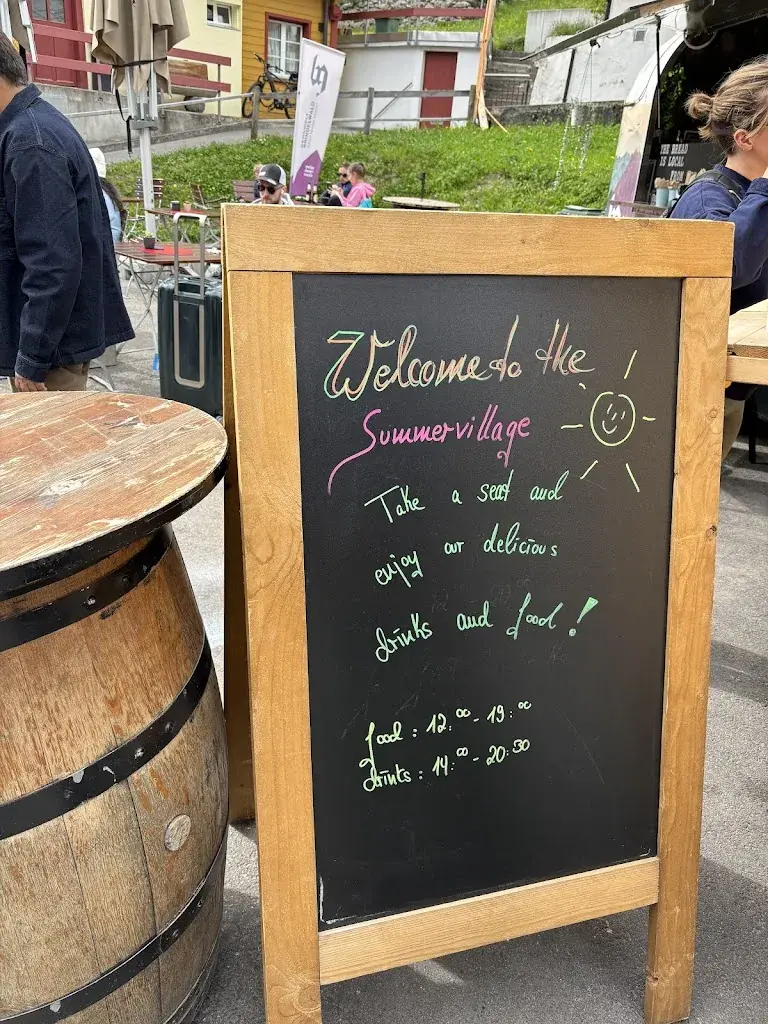 Welcome to the
Summervillage
Take a seat and
enjoy our delicious
drinks and food!
food: 12:00 - 19:00
drinks: 14:00 - 20:30
THE BREAD
IS LOCAL
FROM